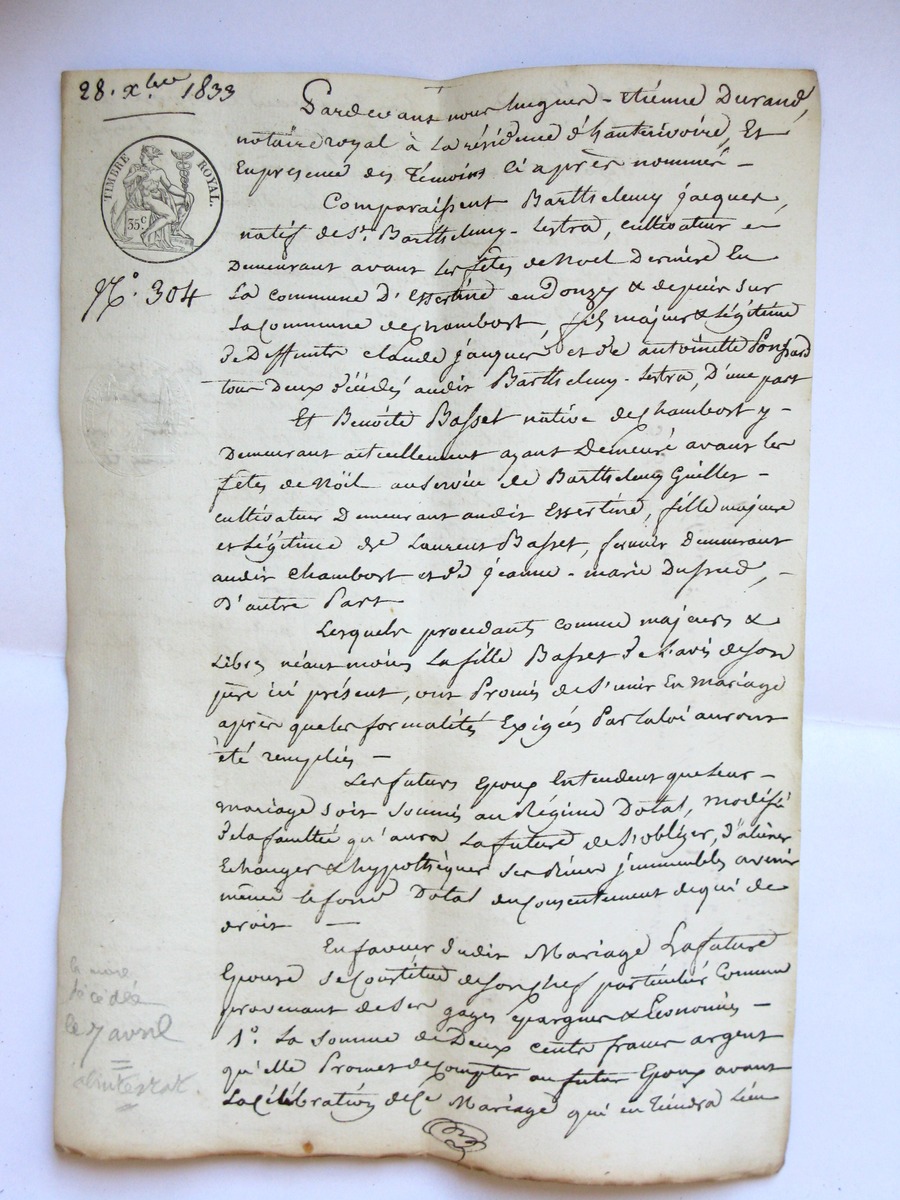 28. Xbre 1833
TIMBRE ROYAL.
35 c
N.° 304
Pardevant nous hugues - étienne Durand,
notaire royal à la résidence d'hauterivoire, Et
En presence des Témoins ci après nommés -
Comparaissent Barthelemy jacques,
natif de St. Barthelemy - Lestra, cultivateur
Demeurant avant les fêtes de Noel Dernière En
La commune D'Essertine en Donzy & depuis sur
La Commune de chambort, fils majeur & Légitime
de Deffunts claude jacques et de antoinette
tous Deux décédés audit Barthelemy - Lestra, D'une part
Et Benoite Basset native de chambort y -
Demeurant actuellement ayant Demeuré avant les
fêtes de Nöel au service de Barthelemy Guillet -
cultivateur Demeurant audit Essertine, fille majeure
et Légitime de Laurent Basset, fermier Demeurant
audit chambort et de jeanne - marie -
D'autre Part
Lesquels procedants comme majeurs &
Libres néant moins La fille Basset de L'avis de son
père ici présent, ont Promis de s'unir En mariage
après que les formalités Exigées Par la loi auront
été remplies -
Les futurs Epoux Entendent que leur -
mariage soit soumis au Régime Dotal, modifié
de la faculté qu'aura La future de s'obliger, d'aliéner
Echanger & hypothéquer ses Biens jmmeubles avenir
même le fond Dotal du Consentement de qui de
droit -
En faveur dudit Mariage La future
Epouse se Constitue de son chef particulier Comme
provenant de ses gages épargnes & Economies -
1°. La somme de Deux cents francs argent
qu'elle Promet de compter au futur Epoux avant
La célébration de Ce Mariage qui en tiendra Lieu
la mère
décédée
le 7 avril